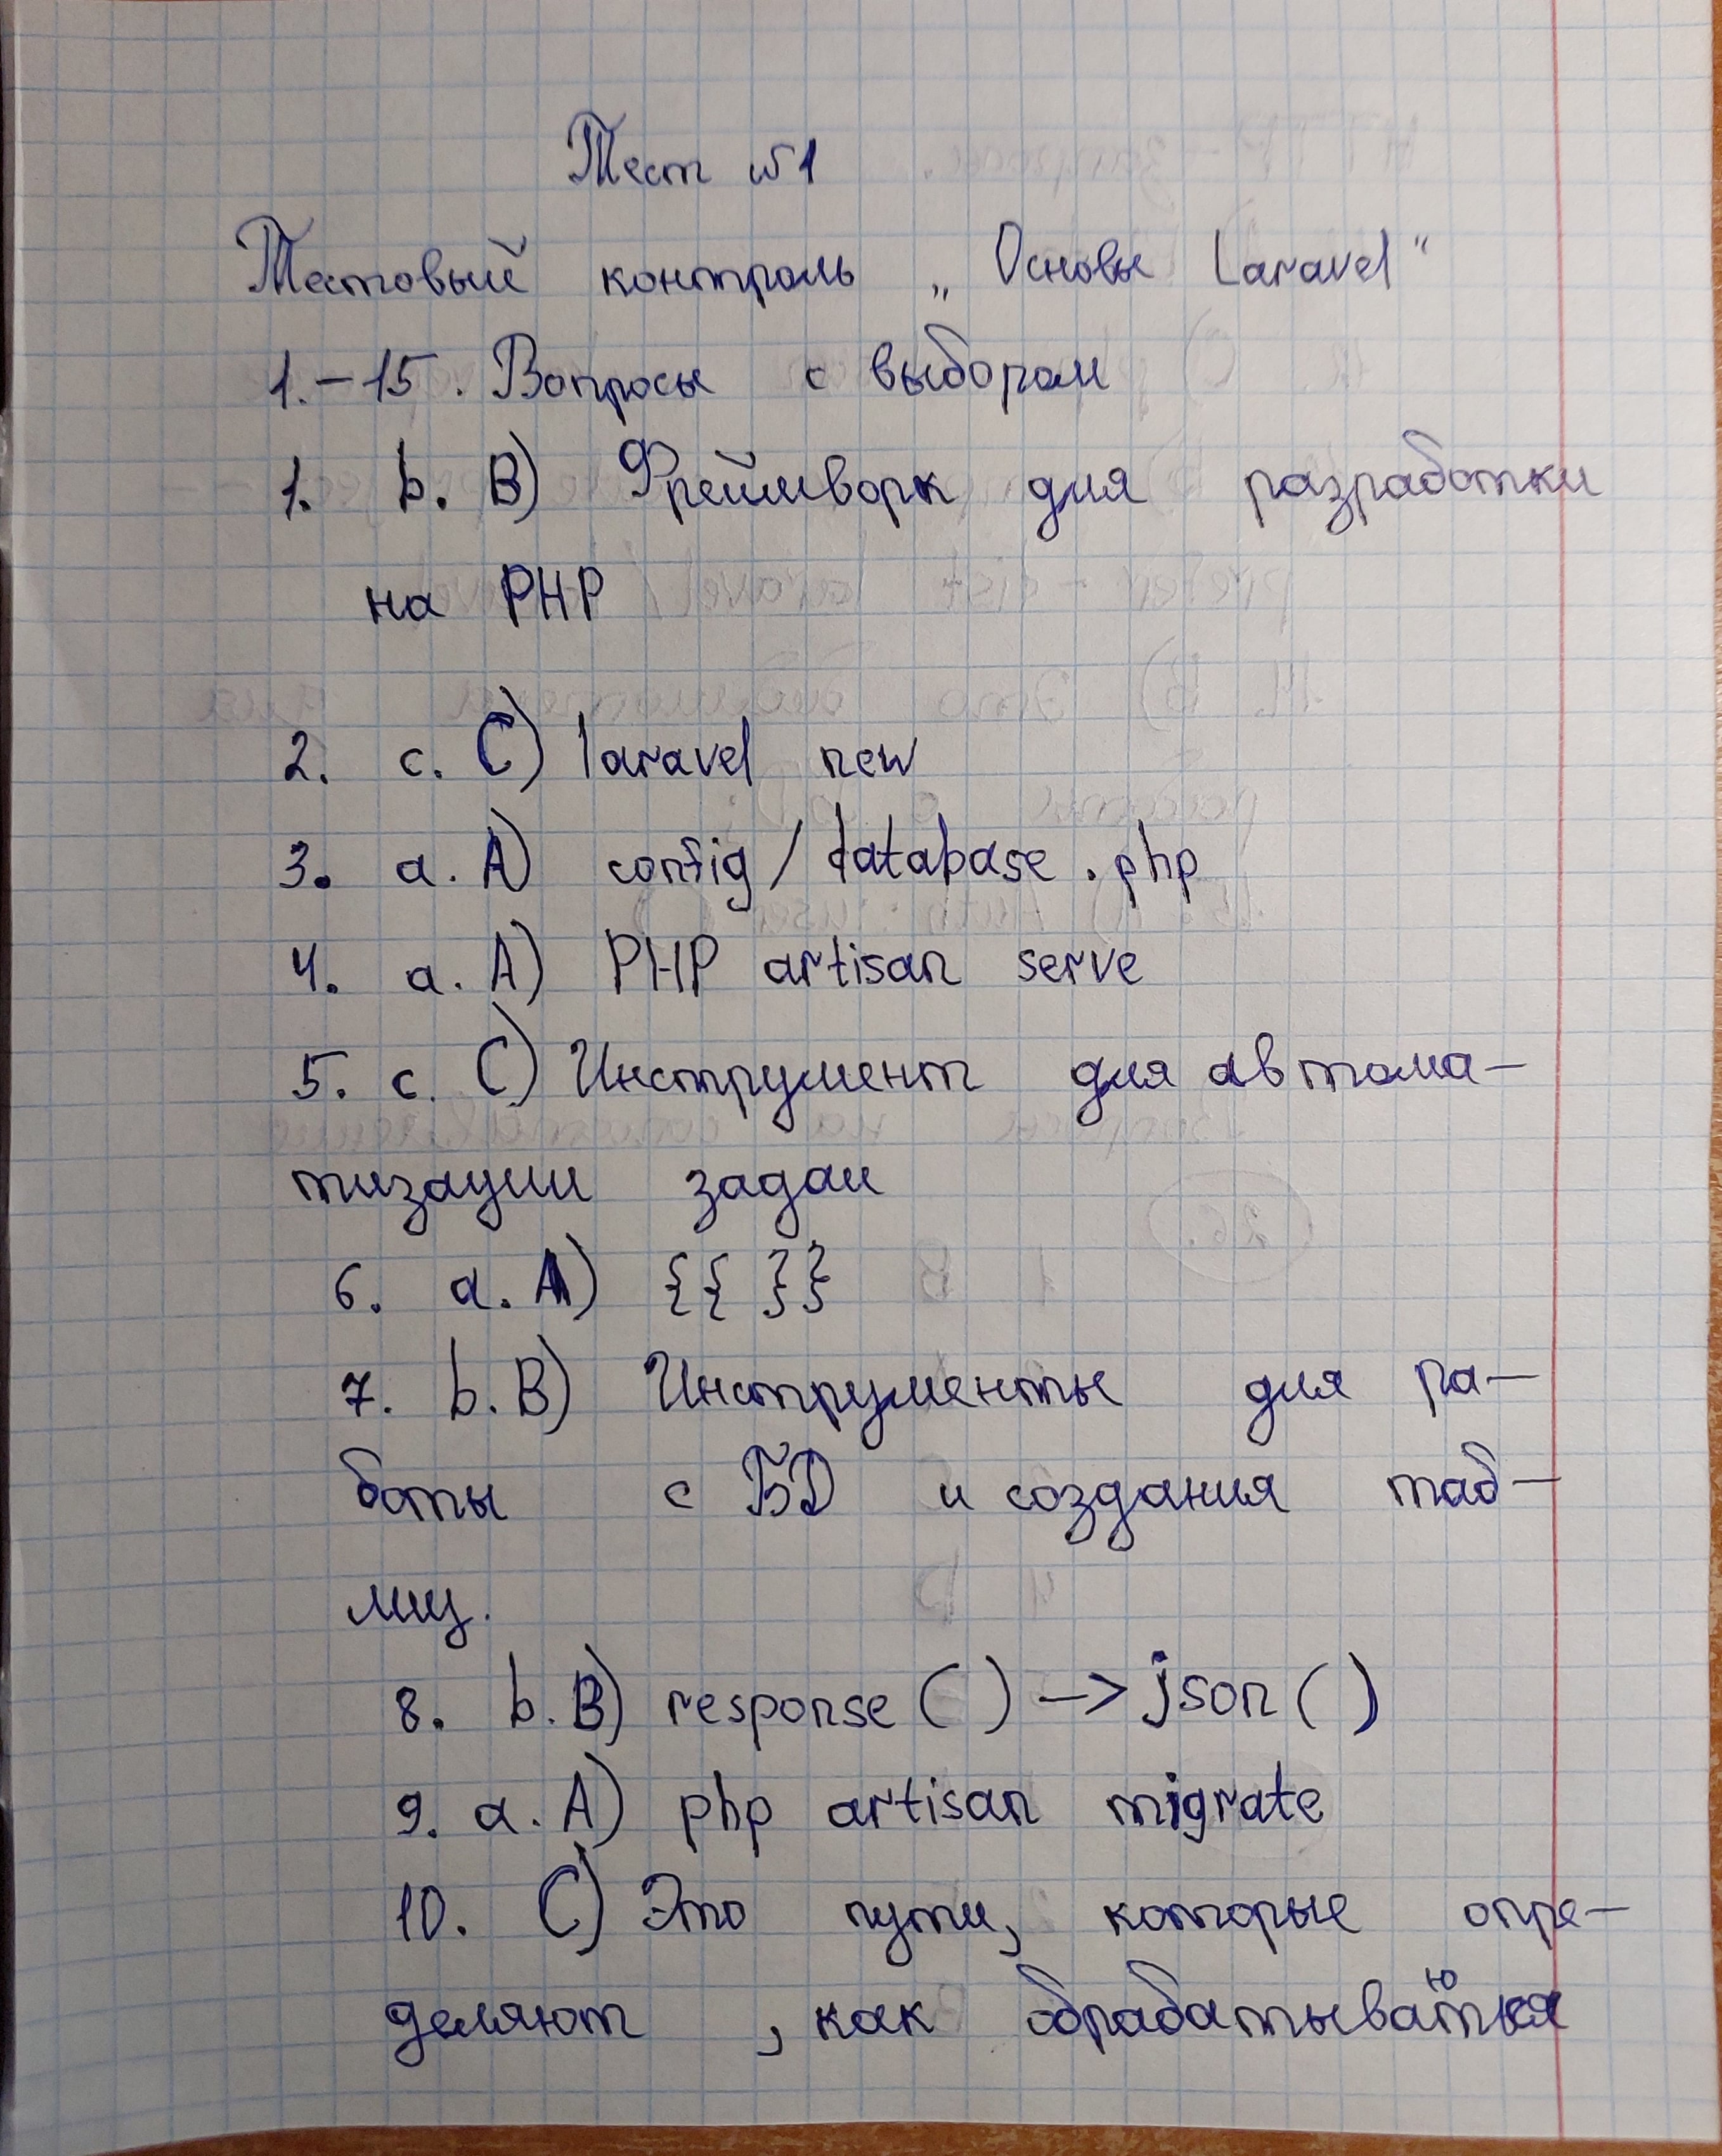 Тест №1
Тестовый контроль „Основы Laravel"
1.–15. Вопросы с выбором
1. b. B) Фреймворк для разработки
на PHP
2. c. C) laravel new
3. a. A) config/database.php
4. a. A) PHP artisan serve
5. c. C) Инструмент для автома–
тизации задач
6. a. A) {{ }}
7. b. B) Инструменты для ра–
боты с БД и создания таб–
лиц.
8. b. B) response()->json()
9. a. A) php artisan migrate
10. C) Это пути, которые опре–
деляют, как обрабатываются